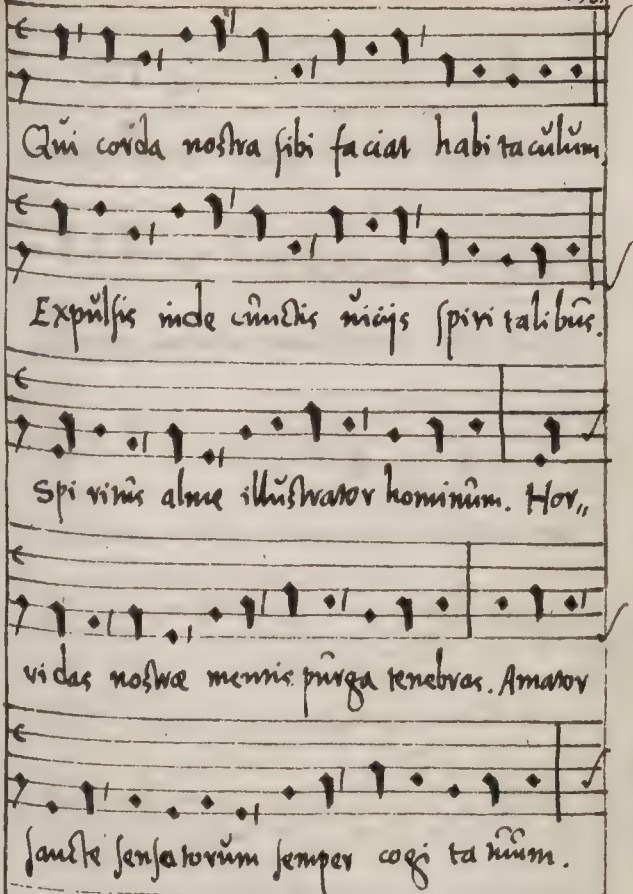 Qui corda nostra sibi faciat habi taculum
Expulsis inde cunctis viciis spiri talibus.
Spi ritus alme illustrator hominum. Hor„
ridas nostræ mentis purga tenebras. Amator
sancte sensatorum semper cogi ta tuum.